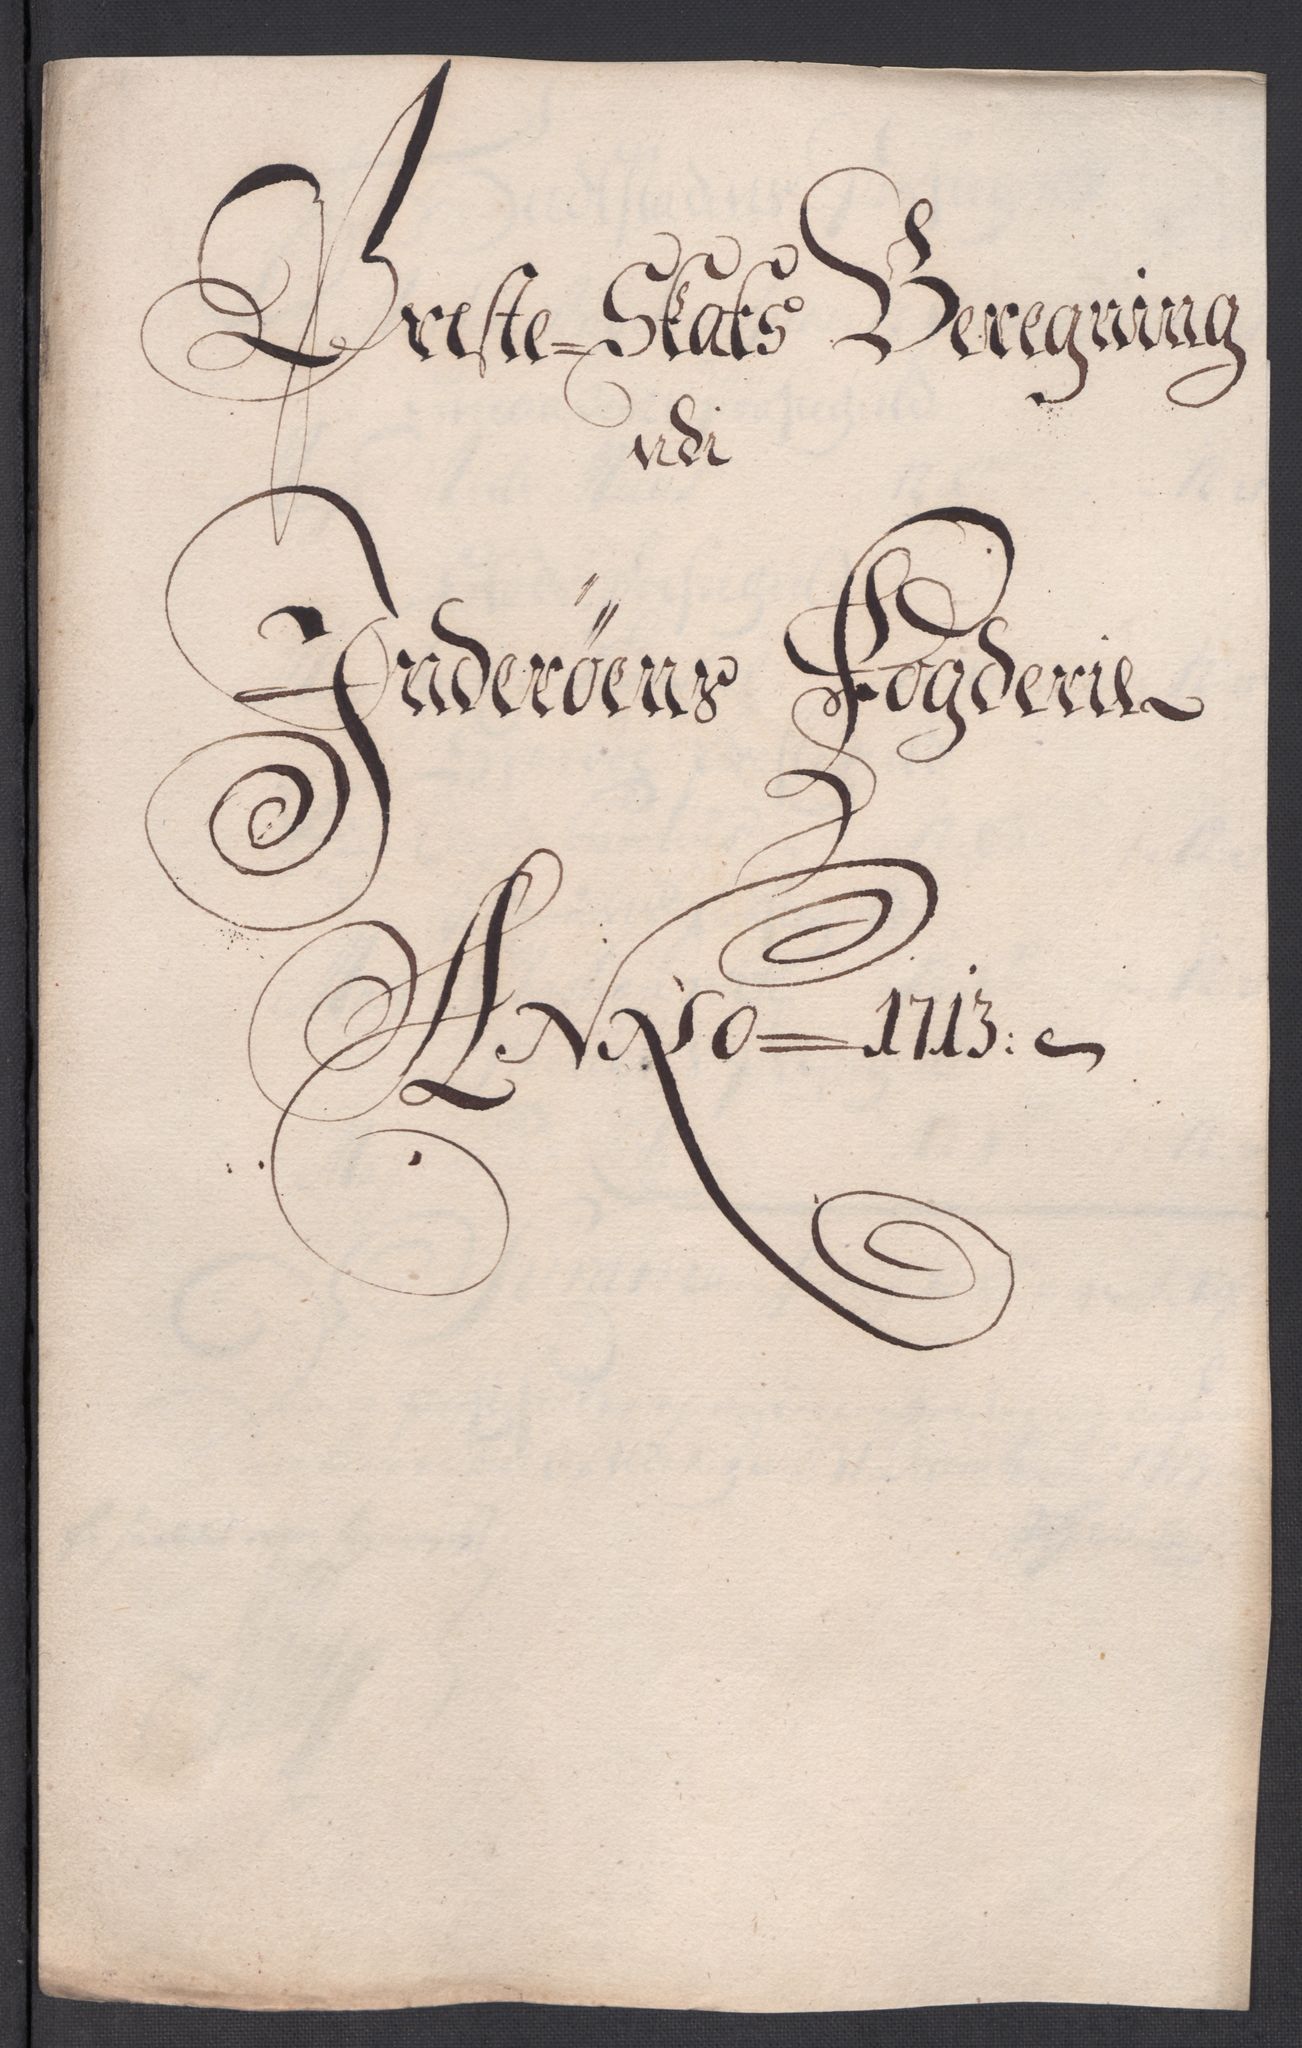 Preste-Skats Beregning
udi
Inderöens Fogderie
Anno 1713: